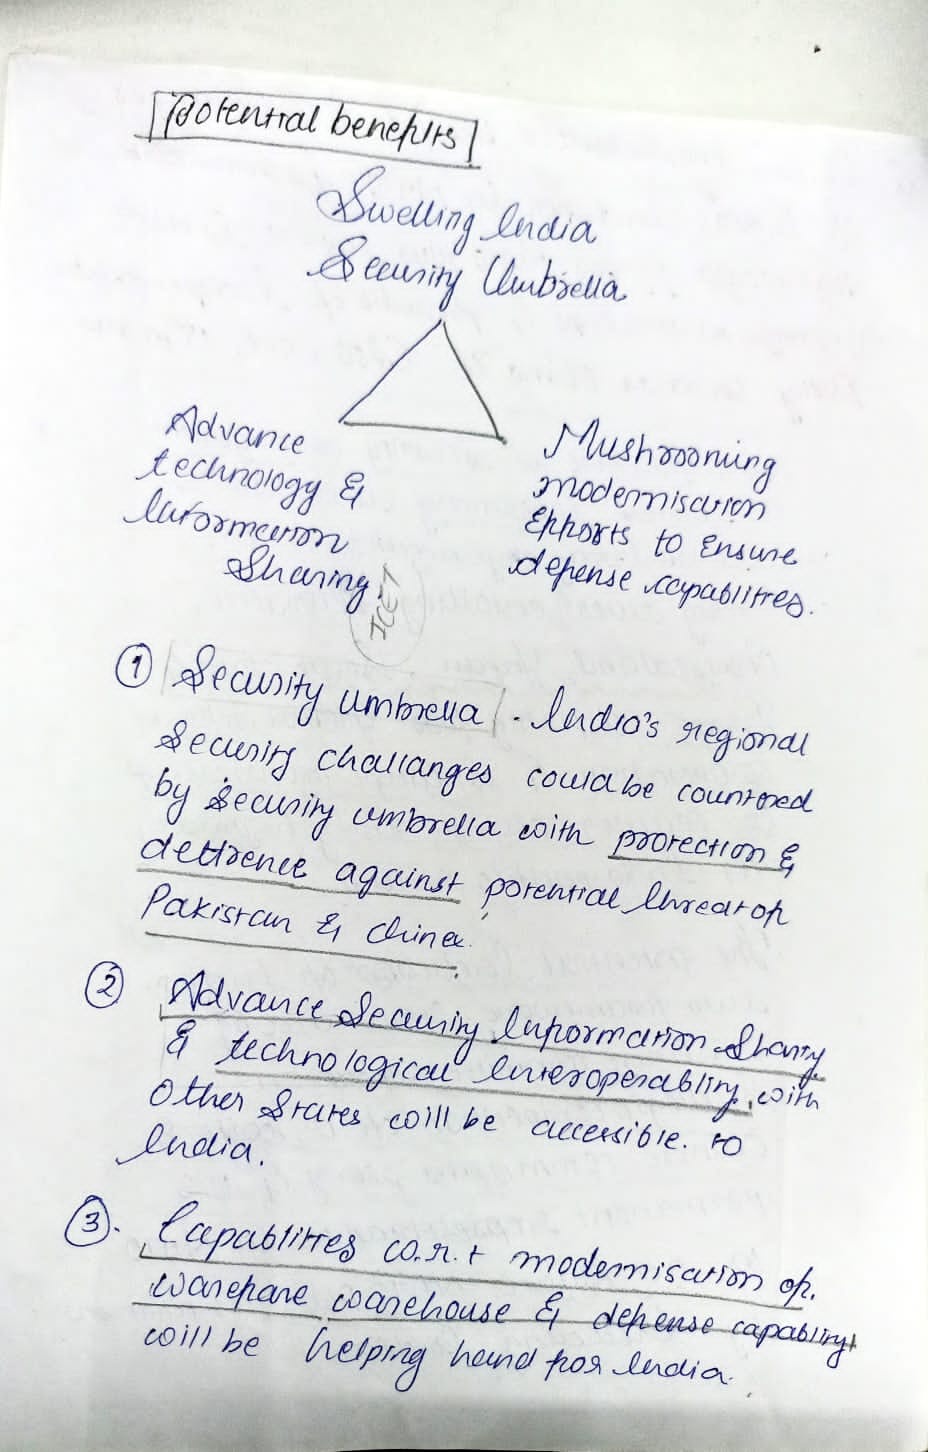 Potential benefits
Swelling India
Security Umbrella
Advance
technology &
Information
Sharing
ICET
Mushrooming
modernisation
Efforts to Ensure
defense capabilities.
① Security umbrella - India's regional
Security challanges could be countered
by security umbrella with protection &
detterence against potential threat of
Pakistan & China.
② Advance Security Information Sharing
& technological Interoperability, with
Other States will be accessible. to
India.
③. Capablities w.r.t modernisation of.
warefare warehouse & defense capablity
will be helping hand for India.